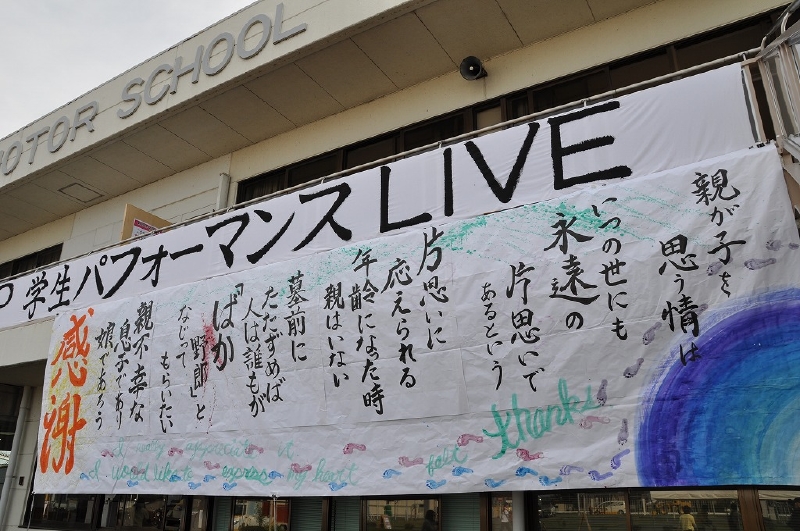 OTOR SCHOOL
学生パフォーマンス LIVE
親が子を
思う情は
いつの世にも
永遠の
片思いで
あるという
片思いに
応えられる
年齢になった時
親はいない
墓前に
たたずめば
人は誰もが
「ばか
野郎」と
なじって もらいたい
親不幸な
息子であり
娘であろう
感謝
thanks
I really appreciate it
I would like to express my heart felt